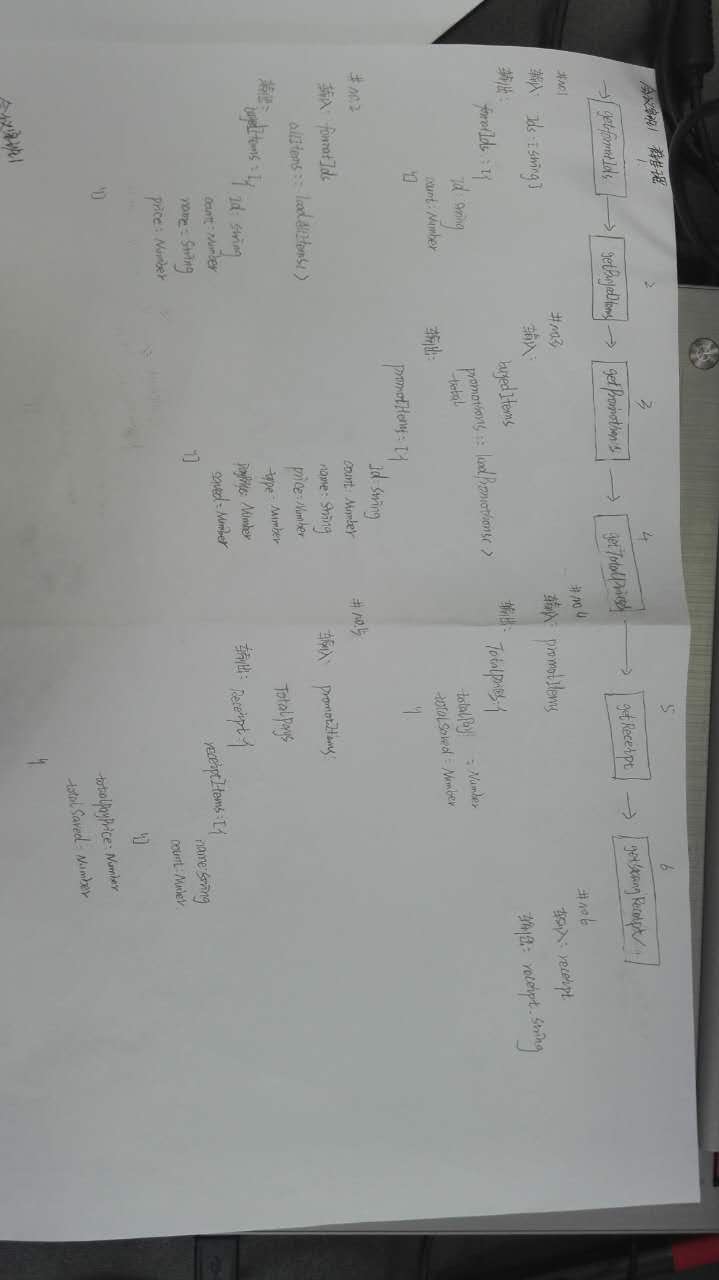 getFormatIds → getBuyedItems → getPromotions → getTotalPrices → getReceipt → getString Receipt
2
3
4
5
6
#no1
输入: Ids: [string]
输出:
formatIds: [{
Id: string
count: Number
}]
#no.2
输入: formatIds
allItems: = loadAllItems()
输出:
buyedItems = [{
Id: string
count: Number
name: String
price: Number
}]
#no3
输入:
buyedItems
promotions: = loadPromotions()
输出:
promotItems = [{
Id: string
count: Number
name: String
price: Number
type: Number
saved: Number
}]
#no4
输入: promotItems
输出: TotalPrices {
totalPay: = Number
totalSaved = Number
}
#no.5
输入: promotItems;
TotalPays
输出: Receipt {
receiptItems = [{
name: String
count: Number
}]
totalPayPrice: Number
totalSaved: Number
}
#no6
输入: receipt
输出: receipt: string